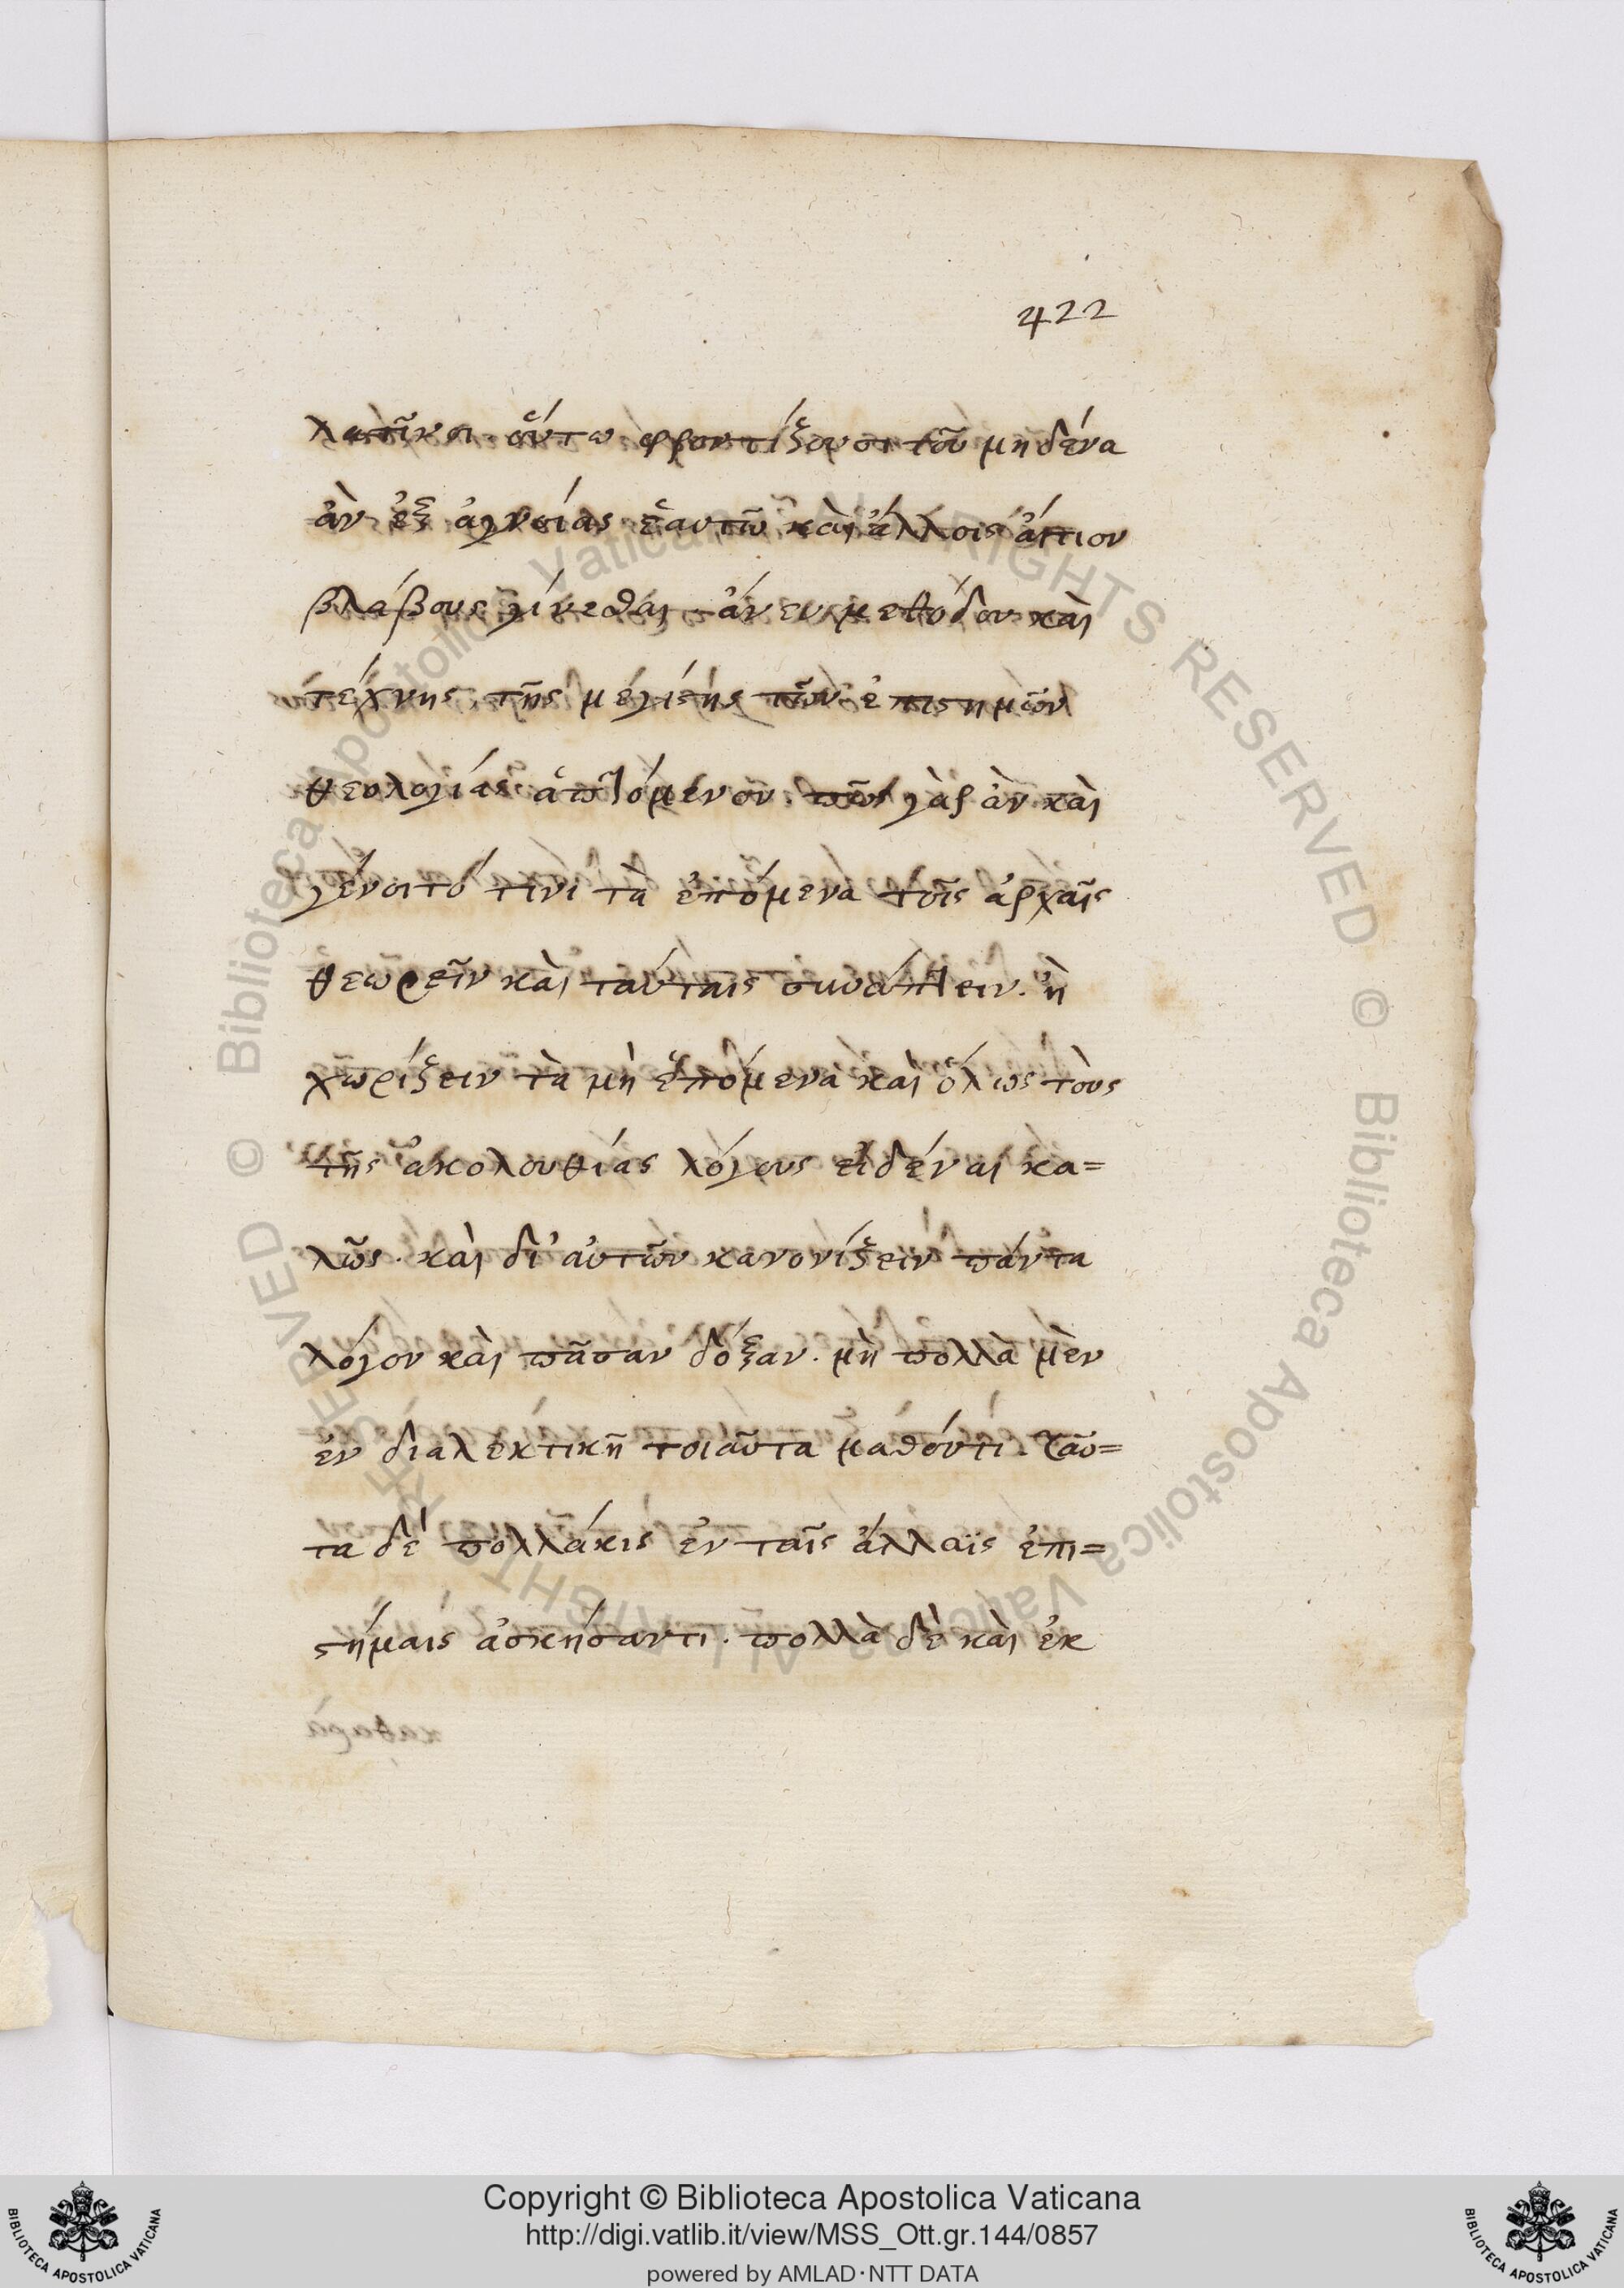 422
λατῖνοι οὕτω φροντίζουσι τοῦ μηδένα
ἂν ἐξ ἀγνοίας ἑαυτῶ καὶ ἄλλοις ἄιτιον
βλάβους γίνεσθαι ἄνευ μεθόδου καὶ
τέχνης τῆς μεγίστης τῶν ἐπιστημῶν
θεολογίας ἁπτόμενον. πῶς γὰρ ἂν καὶ
γένοιτό τινι τὰ ἑπόμενα τοῖς ἀρχαῖς
θεωρεῖν καὶ ταύταις συνάπτειν. ἢ
χωρίζειν τὰ μὴ ἑπόμενα καὶ ὅλως τοὺς
τῆς ἀκολουθίας λόγους εἰδέναι κα=
λῶς. καὶ δι' αὐτῶν κανονίζειν πάντα
λόγον καὶ πᾶσαν δόξαν. μὴ πολλὰ μὲν
ἐν διαλεκτικῆ τοιαῦτα μαθόντι. ταῦ=
τα δὲ πολλάκις ἐν ταῖς ἄλλαις ἐπι=
στήμαις ἀσκήσαντι. πολλὰ δὲ καὶ ἐκ
καθαρά
© Biblioteca Apostolica Vaticana ALL RIGHTS RESERVED © Biblioteca Apostolica Vaticana ALL RIGHTS RESERVED
Copyright © Biblioteca Apostolica Vaticana
http://digi.vatlib.it/view/MSS_Ott.gr.144/0857
powered by AMLAD·NTT DATA
BIBLIOTECA APOSTOLICA VATICANA
BIBLIOTECA APOSTOLICA VATICANA